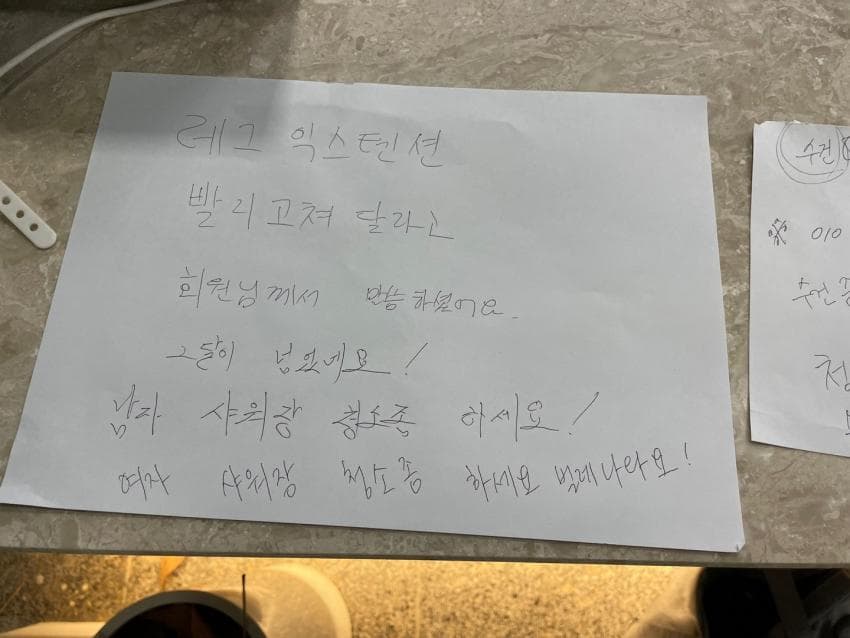 레그 익스텐션
빨리고쳐 달라고
회원님께서 말씀하셨어요.
그달이 넘었네요!
남자 샤워장 청소좀 하세요!
여자 샤워장 청소좀 하세요 벌레나와요!
수건
010
수건
청